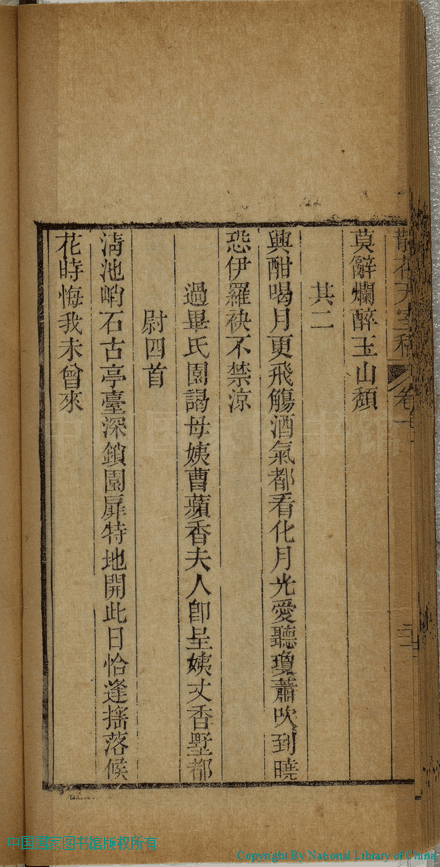 散花天室稿 卷一
莫辭爛醉玉山頹
其二
興酣喝月更飛觴酒氣都看化月光愛聽瓊蕭吹到曉
恐伊羅袂不禁涼
過畢氏園謁母姨曹蘋香夫人卽呈姨丈香墅都
尉四首
淸池峭石古亭臺深鎖園扉特地開此日恰逢搖落候
花時悔我未曾來
中国国家图书馆版权所有
Copyright By National Library of China